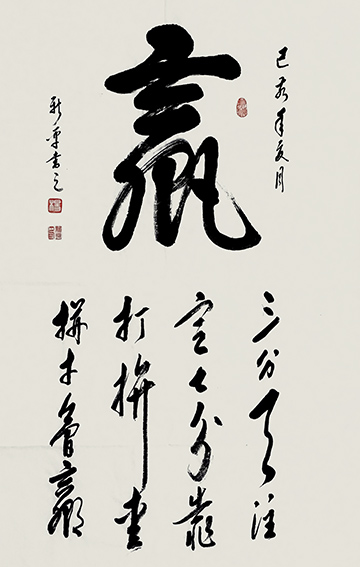 己亥年夏月
赢
书之
三分天注
定七分靠
打拼爱
拼才会赢